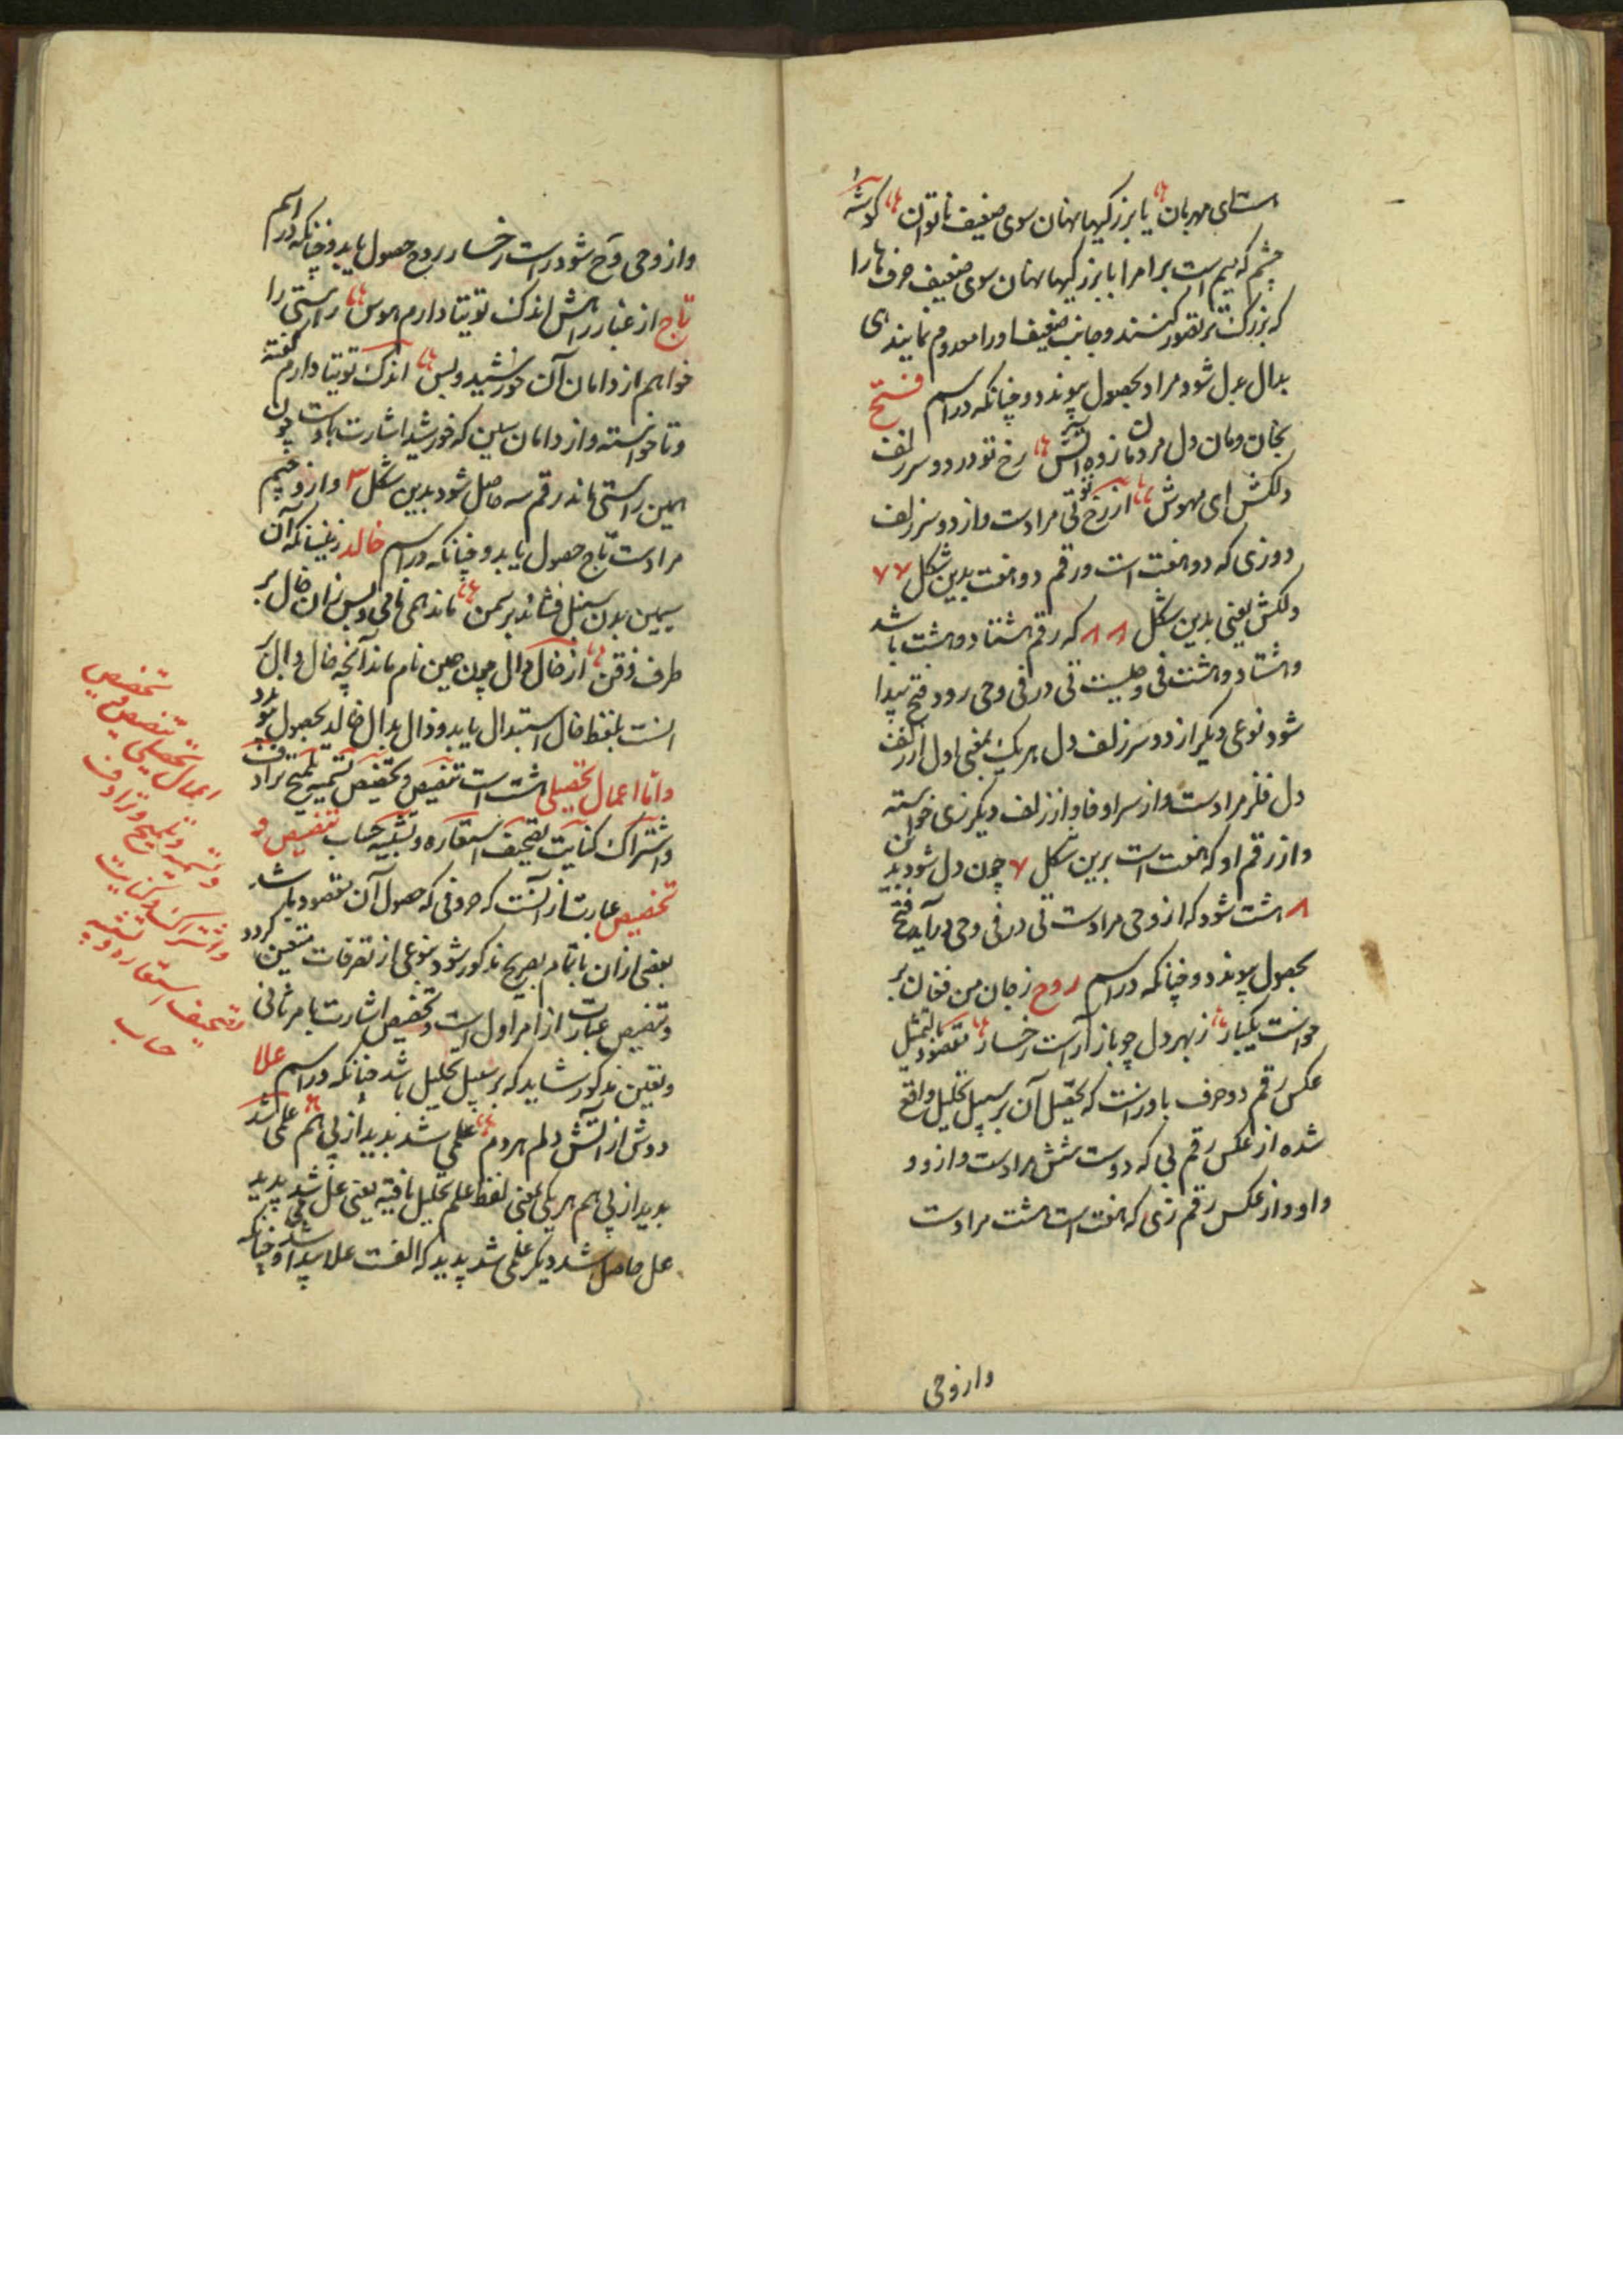 است ای مهربان یا بزرگیها نهان سوی ضعیف ناتوان گوشهٔ
چشم که میم است برا مرا با بزرگیها نهان سوی ضعیف حرف ها را
که بزرگست تصور کنند و جانب ضعیف او را معدوم نمایند ی
بدال بدل شود مراد بحصول پیوندد و چنانکه در اسم فتح
بجان و مان دل مردمان زده آتش رخ تو در دو سر زلف
دلکش ای مهوش از رخ تو تی مرادست و از دو سر زلف
دو زی که دو هفت است و رقم دو هفت بدین شکل ۷۷
دلکش یعنی بدین شکل ۸۸ که رقم هشتاد و هشت باشد
و هشتاد و هشت فی و حیست تی در فی و حی رود فتح پیدا
شود نوعی دیگر از دو سر زلف دل هر یک بمعنی اول از زلف
دل فلز مرادست و از سر او فا و از زلف دیگر زی خواسته
و از رقم او که هفت است برین شکل ۷ چون دل شود بدین
۸ هشت شود که از وحی مرادست تی در فی و حی درآید فتح
بحصول پیوندد و چنانکه در اسم روح ز جان من فغان بر
خواست یکبار ز بهر دل چو باز آراست رخسار مقصود بالتمثیل
عکس رقم دو حرف با و راست که تحصیل آن بر سبیل تحلیل واقع
شده از عکس رقم بی که دوست شش مرادست و از و و
واو و از عکس رقم زی که هفت است هشت مرادست
وازوحی
و از وحی و آح شود راست رخسار روح حصول یابد و چنانکه در اسم
تاج از غبار راهش اندک توتیا دارم هوس راستی را
خواهم از دامان آن خورشید و بس اندک توتیا دارم گفته
و تا خواسته و از دامان سین که خورشید اشارت بدوست چون
همین راستی ماند رقم سه حاصل شود بدین شکل ۳ و از و جیم
مرادست تاج حصول یابد و چنانکه در اسم خالد زینسانکه آن
سیمین بدن سنبل فشاند بر سمن ماند همی نامی و بس زان خال بر
طرف ذقن از خال دال چون همین نام ماند آنچه خال دال بر
انست بلفظ خال استبدال یابد و ذال بدال خالد بحصول پیوندد
و اما اعمال تحصیلی هشت است تنصیص و تخصیص تسمیه تلمیح ترادف
و اشتراک کنایت تصحیف استعاره و تشبیه حساب تنصیص و
تخصیص عبارت از آنست که حروفی که حصول آن مقصود باشد
بعضی از آن یا تمام بصریح مذکور شود بنوعی از تصرفات متعین گردد
و تنصیص عبارت از امر اول است و تخصیص اشارت بامر ثانی
و تعین مذکور شاید که بر سبیل تحلیل باشد چنانکه در اسم علا
دوش از آتش دلم هر دم علمی شد پدید از پی هم علمی شد
پدید از پی هم هر یکی لفظ علم تحلیل یافته یعنی عل شد پدید
عل حاصل شد دیگر علمی شد پدید که الفست علا پیدا شد و چنانکه
اعمال تحصیلی تنصیص و تخصیص
و تسمیه و تلمیح و ترادف
و اشتراک و کنایت
و تصحیف استعاره و تشبیه
حساب